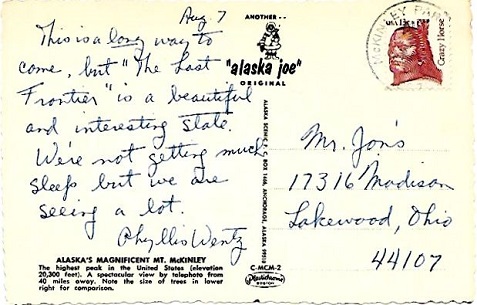 Aug 7
This is a long way to
come, but "The Last
Frontier" is a beautiful
and interesting state.
We're not getting much
sleep but we are
seeing a lot.
Phyllis Wentz
ALASKA'S MAGNIFICENT MT. McKINLEY
The highest peak in the United States (elevation
20,300 feet). A spectacular view by telephoto from
40 miles away. Note the size of trees in lower
right for comparison.
ANOTHER --
"alaska joe"
ORIGINAL
C-MCM-2
Plastichrome
BOSTON
McKINLEY PARK
Crazy Horse
Mr. Jon's
17316 Madison
Lakewood, Ohio
44107